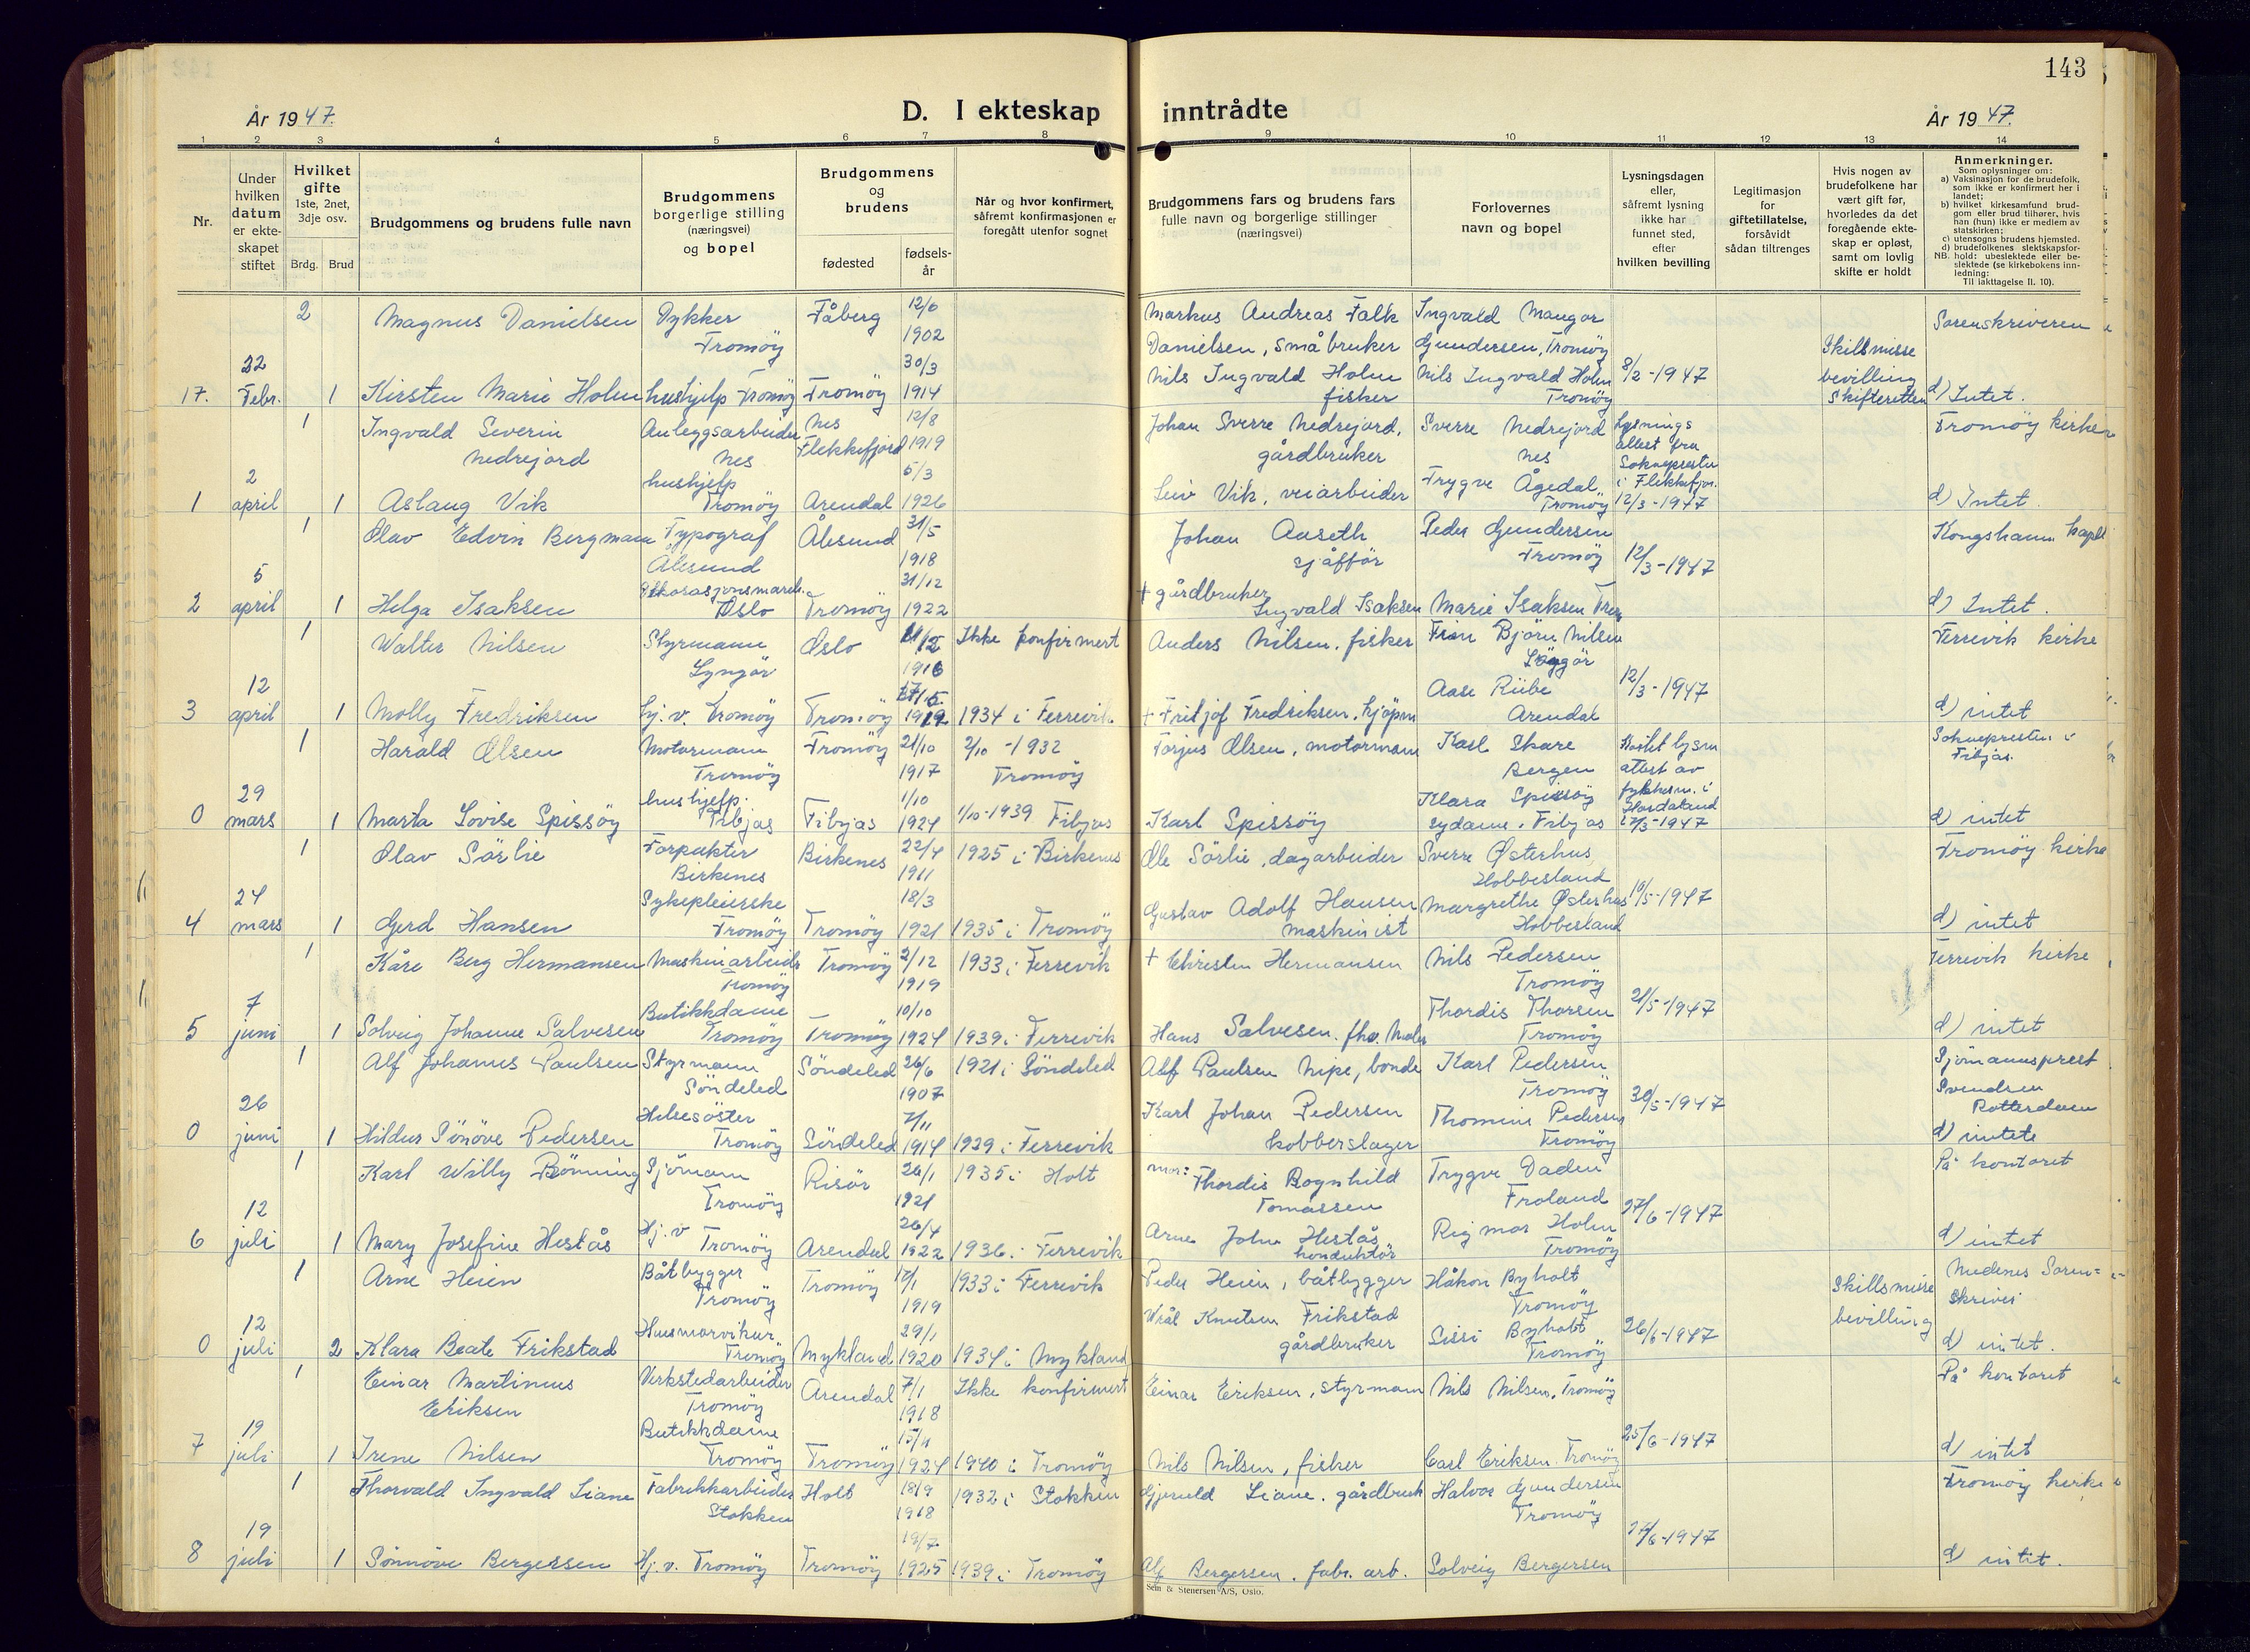 143
År 1947.
D. I ekteskap inntrådte
År 1947.
1
2
3
4
5
6
7
8
9
10
11
12
13
14
Nr.
Under
hvilken
datum
er ekte-
skapet
stiftet
Hvilket
gifte
1ste, 2net,
3dje osv.
Brdg.
Brud
Brudgommens og brudens fulle navn
Brudgommens
borgerlige stilling
(næringsvei)
og bopel
Brudgommens
og
brudens
fødested
fødsels-
år
Når og hvor konfirmert,
såfremt konfirmasjonen er
foregått utenfor sognet
Brudgommens fars og brudens fars
fulle navn og borgerlige stillinger
(næringsvei)
Forlovernes
navn og bopel
Lysningsdagen
eller,
såfremt lysning
ikke har
funnet sted,
efter
hvilken bevilling
Legitimasjon
for
giftetillatelse,
forsåvidt
sådan tiltrenges
Hvis nogen av
brudefolkene har
vært gift før,
hvorledes da det
foregående ekte-
skap er opløst,
samt om lovlig
skifte er holdt
Anmerkninger.
Som oplysninger om:
a) Vaksinasjon for de brudefolk,
som ikke er konfirmert her i
landet;
b) hvilket kirkesamfund brud-
gom eller brud tilhører, hvis
han (hun) ikke er medlem av
statskirken;
c) utensogns brudens hjemsted.
d) brudefolkenes slektskapsfor-
NB. hold: ubeslektede eller be-
slektede (se kirkebokens inn-
ledning:
Til iakttagelse II. 10).
2 Magnus Danielsen Dykker Fåberg 12/6 Markus Andreas Falk Ingvald Mangor Sorenskriveren
Tromöy 1902 Danielsen, småbruker Gundersen, Tromöy Skilsmisse
22 30/3 Nils Ingvald Holm Nils Ingvald Holm 8/2-1947 bevilling
17. Febr. 1 Kirsten Marie Holm hushjelp Tromöy Tromöy 1914 fisker Tromöy Skifteretten d) Intet.
1 Ingvald Severin Anleggsarbeider Nes 12/8 Johan Sverre Nedrejord, Sverre Nedrejord Lysnings Tromöy kirke
Nedrejord Nes Flekkefjord 1919 gårdbruker Nes attest fra
2 hushjelp 5/3 Trygve Ågedal Soknepresten
i Flekkefjor.
1 april 1 Aslaug Vik Tromöy Arendal 1926 Leiv Vik, veiarbeider Tromöy 12/3-1947 d) Intet
1 Olav Edvin Bergmann Typograf Ålesund 31/5 Johan Aaseth Peder Gundersen Kongshamn kapell
Ålesund 1918 sjåfför Tromöy 12/3-1947
5 31/12 + gårdbruker
2 april 1 Helga Isaksen Oslo Tromöy 1922 Ingvald Isaksen Marie Isaksen d) Intet.
1 Walter Nilsen Styrmann Oslo Ikke konfirmert Anders Nilsen. fisker Finn Björn Nilsen Ferrevik kirke
Lyngör 1916
12 Aase Riibe 12/3-1947
3 april 1 Molly Fredriksen hj. v. Tromöy Tromöy 1919 1934 i Ferrevik + Fritjof Fredriksen. kjöpm Arendal d) intet
1 Harald Olsen Motormann Tromöy 21/10 2/10 -1932 Torjus Olsen, motormann Karl Skare Soknepresten i
Tromöy 1917 Tromöy Bergen attest av Fitjar.
29 hushjelp. 1/10 Klara Spissöy fylkesm. i
Hordaland
0 mars 1 Marta Lovise Spissöy Fitjar Fitjar 1924 1/10-1939 Fitjar Karl Spissöy sydame. Fitjar 17/3-1947 d) intet
1 Olav Sörlie Forpakter Birkenes 22/4 1925 i Birkenes Ole Sörlie, dagarbeider Sverre Østerhus Tromöy kirke
Birkenes 1911 Hobbesland
24 Sykepleierske 18/3 Gustav Adolf Hansen Margrethe Østerhus 10/5-1947
4 mars 1 Gerd Hansen Tromöy Tromöy 1921 1935 i Tromöy maskinist Hobbesland d) intet
1 Kåre Berg Hermansen Maskinarbeider Tromöy 2/12 1933 i Ferrevik + Christen Hermansen Nils Pedersen Ferrevik kirke
Tromöy 1919 Tromöy
7 Butikkdame 10/10 Thordis Thorsen 21/5-1947
5 juni 1 Solveig Johanne Salvesen Tromöy Tromöy 1924 1939 i Ferrevik Hans Salvesen. Tromöy d) intet
1 Alf Johannes Paulsen Styrmann Söndeled 26/6 1921 i Söndeled Alf Paulsen Nipe, bonde Karl Pedersen Sjömannsprest
Söndeled 1907 Tromöy Svendsen
26 Helsesöster 7/11 Karl Johan Pedersen Thomine Pedersen 30/5-1947 Rotterdam
0 juni 1 Hildur Sönöve Pedersen Tromöy Söndeled 1914 1929 i Ferrevik kobberslager Tromöy d) intete
1 Karl Willy Bönning Sjömann Risör 26/1 1935 i Holt mor: Thordis Ragnhild Trygve Daden På kontoret
Tromöy 1921 Tomassen Froland
12 Hj. v 26/4 Arne John Hestås Rigmor Holm 27/6-1947
6 juli 1 Mary Josefine Hestås Tromöy Arendal 1922 1936 i Ferrevik konduktör Tromöy d) intet
1 Arne Heien Båtbygger Tromöy 17/1 1933 i Ferrevik Peder Heien, båtbygger Håkon Byholt Skillsmisse Nedenes Soren=
Tromöy 1919 Tromöy bevilling skriver
12 Husmorvikar. 29/1 Vrål Knutsen Frikstad Sissi Byholt 26/6-1947
0 juli 2 Klara Beate Frikstad Tromöy Mykland 1920 1934 i Mykland gårdbruker Tromöy d) intet.
1 Einar Martinius Verkstedarbeider Arendal 7/1 Ikke konfirmert Einar Eriksen, styrmann Nils Nilsen, Tromöy På kontoret
Eriksen Tromöy 1918
19 Butikkdame 15/11 25/6-1947
7 juli 1 Irene Nilsen Tromöy Tromöy 1924 1940 i Tromöy Nils Nilsen, fisker Carl Eriksen. Tromöy d) intet
1 Thorvald Ingvald Liane Fabrikkarbeider Holt 18/9 1932 i Stokken Gjeruld Liane. gårdbruk Halvor Gundersen Tromöy kirke
Stokken 1918 Tromöy
19 19/7 27/6-1947
8 juli 1 Sönnöve Bergersen Hj. v. Tromöy Tromöy 1925 1939 i Tromöy Alf Bergersen. fabr. arb. Solveig Bergersen d) intet.
Sem & Stenersen A/S, Oslo.